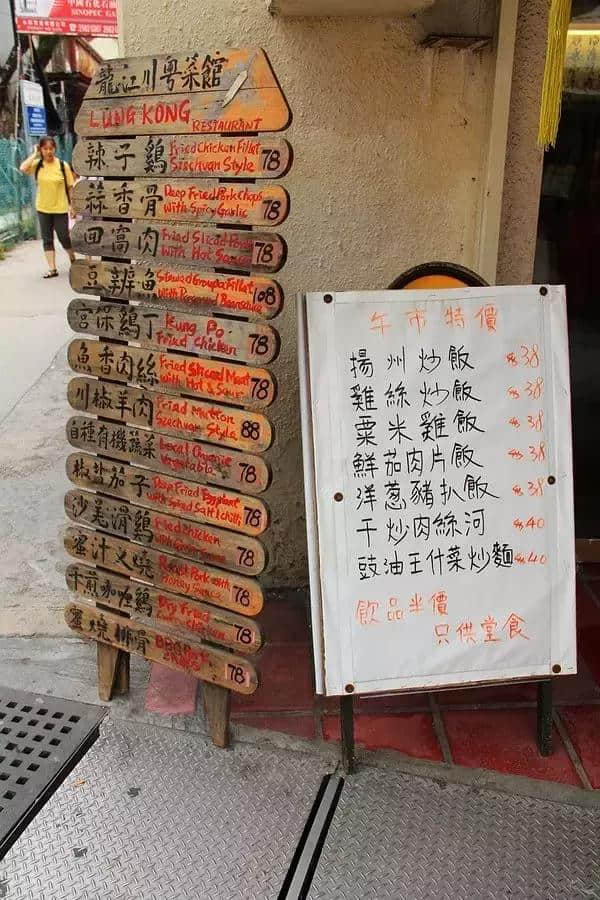 中國石化石油
SINOPEC GA
龍江川粵菜館
LUNG KONG
RESTAURANT
辣子鷄 Fried Chicken Fillet Szechuan Style 78
蒜香骨 Deep Fried Pork Chops with Spicy Garlic 78
回窩肉 Fried Sliced Pork with Hot Sauce 78
豆瓣魚 Stewed Groupa Fillet with Preserved Beansauce 108
宮保鷄丁 Kung Po Fried Chicken 78
魚香肉絲 Fried Sliced Meat with Hot & Sauce 78
川椒羊肉 Fried Mutton Szechuan Style 88
自種有機蔬菜 Local Organic Vegetable 78
椒鹽茄子 Deep Fried Eggplant with Spiced Salt & Chilli 78
沙羌滑鷄 Fried Chicken with 78
蜜汁叉燒 Roast Pork with Honey Sauce 78
干煎咖喱鷄 Dry Fried Chicken 78
蜜燒排骨 BBQ Pork 78
午市特價
揚州炒飯 $38
雞絲炒飯 $38
粟米雞飯 $38
鮮茄肉片飯 $38
洋葱豬扒飯 $38
干炒肉絲河 $40
豉油王什菜炒麵 $40
飲品半價
只供堂食